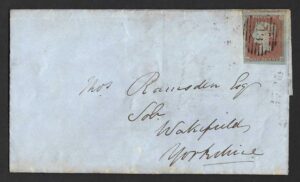 Thos Ramsden Esq
Solr
Wakefield
Yorkshire